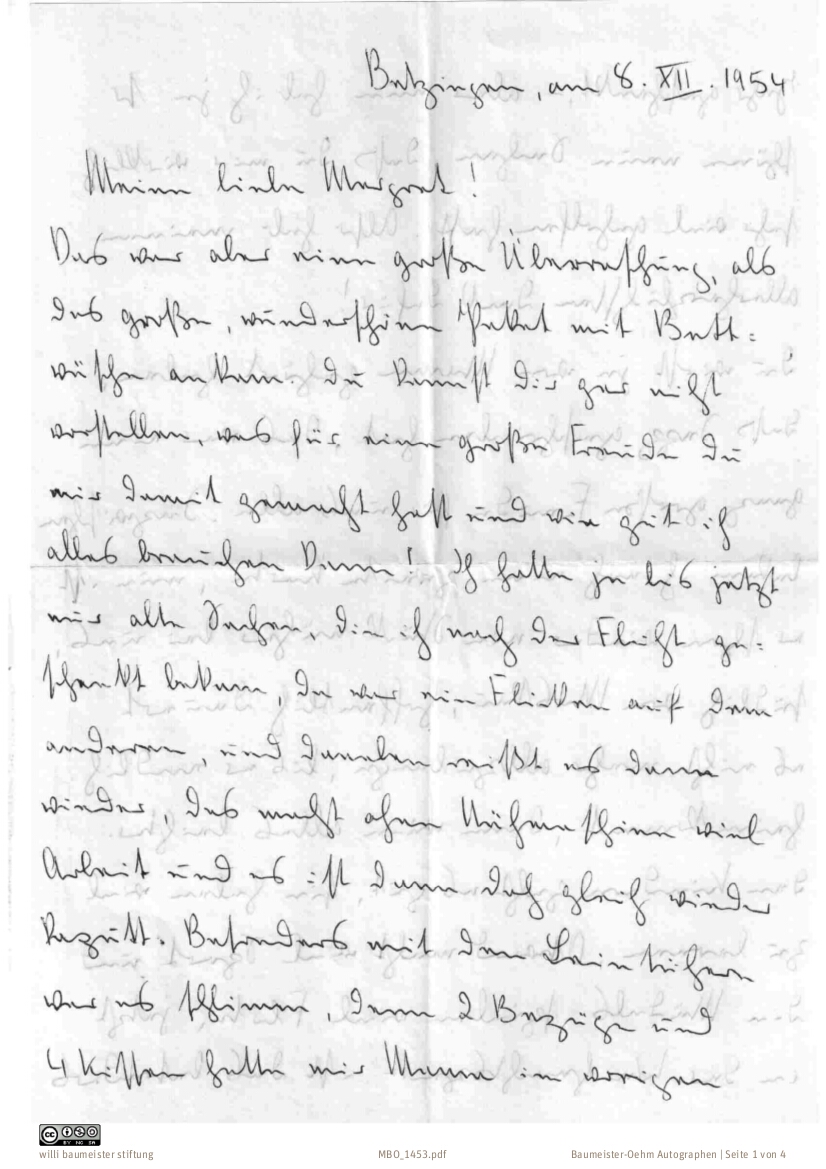 Betzingen, am 8. XII. 1954
Meine liebe Margret!
Das war aber eine große Überraschung, als
das große, wunderschöne Paket mit Bett=
wäsche ankam. Du kannst Dir gar nicht
vorstellen, was für eine große Freude Du
mir damit gemacht hast und wie gut ich
alles brauchen kann! Ich hatte ja bis jetzt
nur alte Sachen, die ich nach der Flucht ge=
schenkt bekam, da war ein Flicken auf dem
anderen, und daneben reißt es dann
wieder, das macht ohne Nähmaschine viel
Arbeit und es ist dann doch gleich wieder
kaputt. Besonders mit den Leintüchern
war es schlimm, denn 2 Bezüge und
4 Kissen hatte mir Mama im vorigen
willi baumeister stiftung
MBO_1453.pdf
Baumeister-Oehm Autographen | Seite 1 von 4
CC BY NC SA